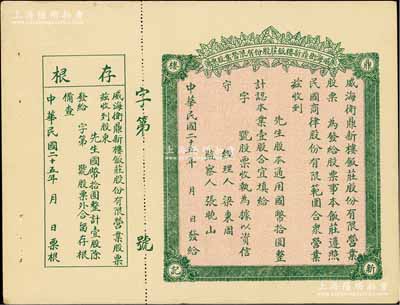 威海衛鼎新樓飯莊股份有限營業股票
鼎
樓
新
記
威海衛鼎新樓飯莊股份有限營業
股票 為發給股票事本飯莊遵照
民國商律股份有限範圍合衆營業
茲收到
先生股本通用國幣拾圓整
計認本業壹股合宜填給
字 號股票收執為據以資信
守
經理人 梁東周
監察人 張曉山
中華民國二十五年 月 日發給
字第 號
存根
威海衛鼎新樓飯莊股份有限營業股票
茲收到股東
先生國幣拾圓整計壹股除
發給 字第 號股票外合留存根
備查
中華民國二十五年 月 日票根